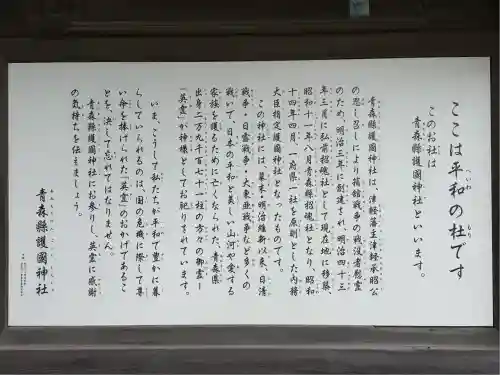 ここは平和の杜です
このお社は
青森縣護國神社といいます。
青森縣護國神社は、津軽藩主津軽承昭公
の思し召しにより箱館戦争の戦没者慰霊
のため、明治三年に創建され、明治四十三
年三月に弘前招魂社として現在地に移築、
昭和十一年八月青森縣招魂社となり、昭和
十四年四月、一府県一社を原則とした内務
大臣指定護國神社となったものです。
この神社には、幕末・明治維新以来、日清
戦争・日露戦争・大東亜戦争など多くの
戦いで、日本の平和と美しい山河や愛する
家族を護るために亡くなられた、青森県
出身二万九千百七十一柱の方々の御霊―
「英霊」が神様としてお祀りされています。
いま、こうして私たちが平和で豊かに暮
らしていられるのは、国の危機に際して尊
い命を捧げられた「英霊」のおかげであるこ
とを、決して忘れてはなりません。
青森縣護國神社にお参りし、英霊に感謝
の気持ちを伝えましょう。
青森縣護國神社